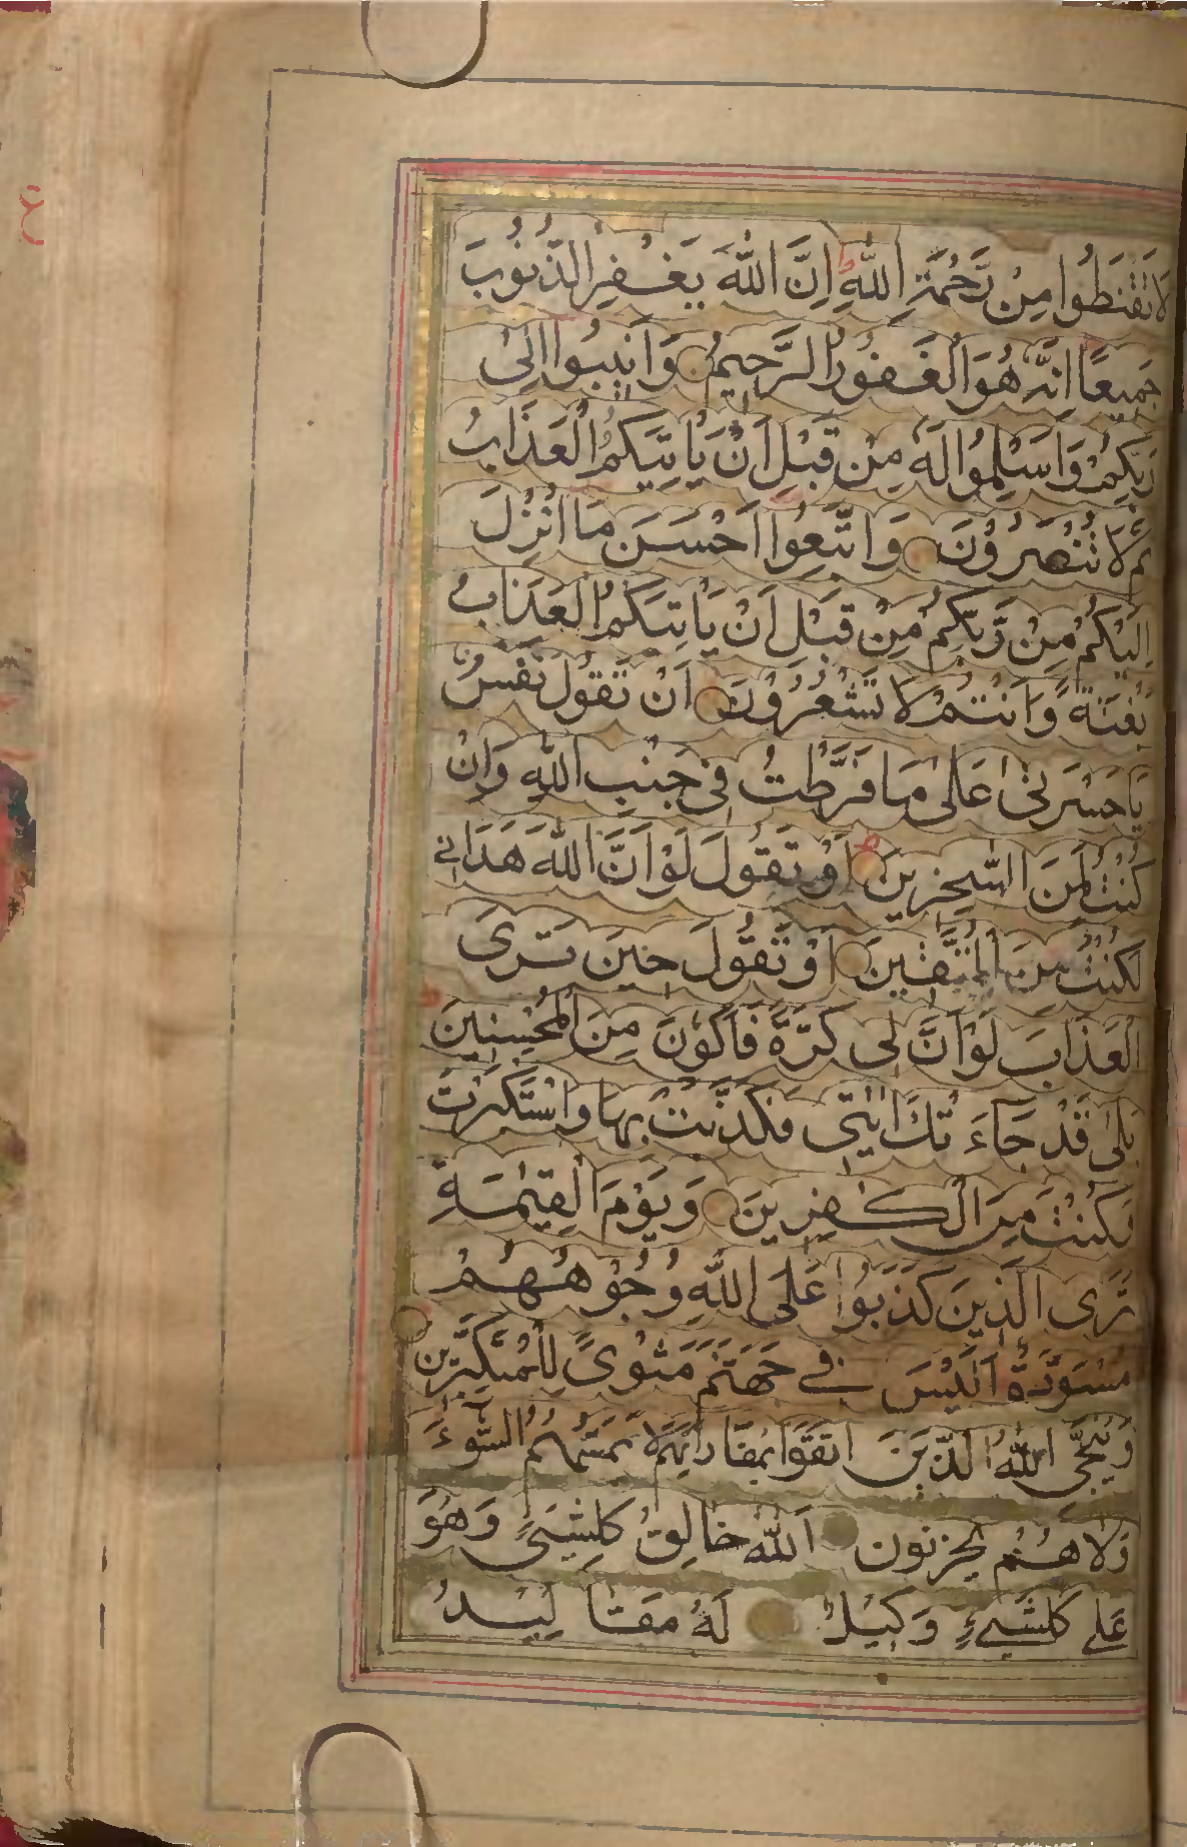 لَا تَقْنَطُوا مِنْ رَّحْمَةِ اللّٰهِ اِنَّ اللّٰهَ يَغْفِرُ الذُّنُوبَ
جَمِيعًا اِنَّهُ هُوَ الْغَفُورُ الرَّحِيمُ وَاَنِيبُوا اِلٰى
رَبِّكُمْ وَاَسْلِمُوا لَهُ مِنْ قَبْلِ اَنْ يَاْتِيَكُمُ الْعَذَابُ
ثُمَّ لَا تُنْصَرُونَ وَاتَّبِعُوا اَحْسَنَ مَا اُنْزِلَ
اِلَيْكُمْ مِنْ رَّبِّكُمْ مِنْ قَبْلِ اَنْ يَاْتِيَكُمُ الْعَذَابُ
بَغْتَةً وَّاَنْتُمْ لَا تَشْعُرُونَ اَنْ تَقُولَ نَفْسٌ
يَا حَسْرَتٰى عَلٰى مَا فَرَّطْتُ فِى جَنْبِ اللّٰهِ وَاِنْ
كُنْتُ لَمِنَ السّٰخِرِينَ اَوْ تَقُولَ لَوْ اَنَّ اللّٰهَ هَدَانِى
لَكُنْتُ مِنَ الْمُتَّقِينَ اَوْ تَقُولَ حِينَ تَرَى
الْعَذَابَ لَوْ اَنَّ لِى كَرَّةً فَاَكُونَ مِنَ الْمُحْسِنِينَ
بَلٰى قَدْ جَاءَتْكَ اٰيٰتِى فَكَذَّبْتَ بِهَا وَاسْتَكْبَرْتَ
وَكُنْتَ مِنَ الْكٰفِرِينَ وَيَوْمَ الْقِيٰمَةِ
تَرَى الَّذِينَ كَذَبُوا عَلَى اللّٰهِ وُجُوهُهُمْ
مُسْوَدَّةٌ اَلَيْسَ فِى جَهَنَّمَ مَثْوًى لِلْمُتَكَبِّرِينَ
وَيُنَجِّى اللّٰهُ الَّذِينَ اتَّقَوْا بِمَفَازَتِهِمْ لَا يَمَسُّهُمُ السُّوءُ
وَلَا هُمْ يَحْزَنُونَ اَللّٰهُ خَالِقُ كُلِّ شَىْءٍ وَهُوَ
عَلٰى كُلِّ شَىْءٍ وَكِيلٌ لَهُ مَقَالِيدُ